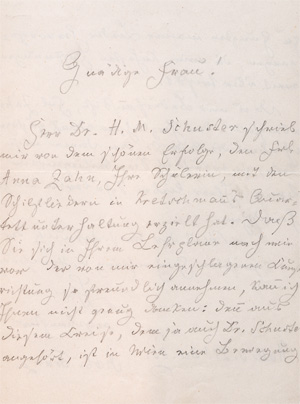 Gnädige Frau!
Herr Dr. H. M. Schuster schrieb
mir von dem schönen Erfolge, den Frl.
Anna Zahn, Ihre Schülerin, mit den
Schilfliedern in Kretschmann's Quar-
tettunterhaltung erzielt hat. Daß
Sie sich in Ihrem Lehrplane auch mir
vor der von mir eingeschlagenen
richtung so freundlich annehmen, kan ich
Ihnen nicht genug danken: deñ aus
diesem Kreise, dem ja auch Dr. Schuster
angehört, ist in Wien eine Bewegung